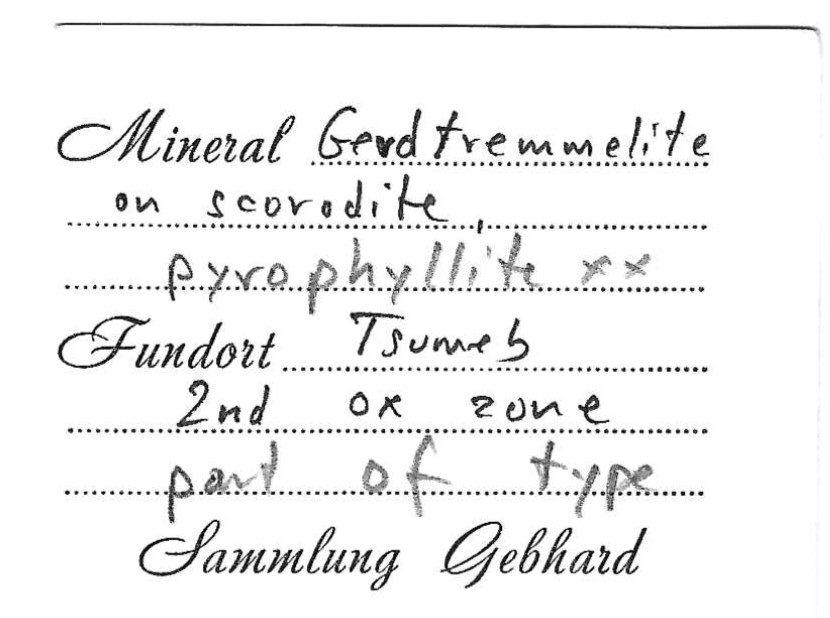 Mineral Gerdtremmelite
on scorodite,
pyrophyllite xx
Fundort Tsumeb
2nd ox zone
part of type
Sammlung Gebhard